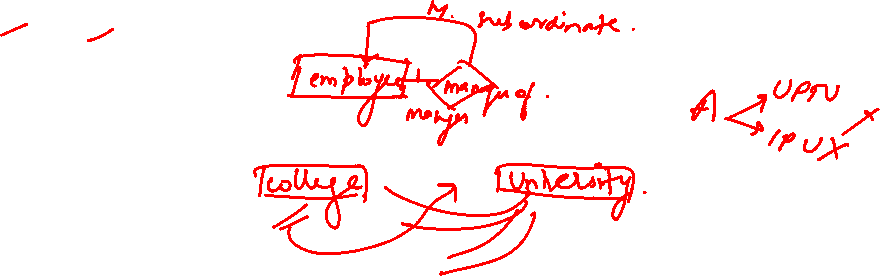 M. subordinate.
employee 1 manager of.
manager
A UPTU
IPU X
college University.